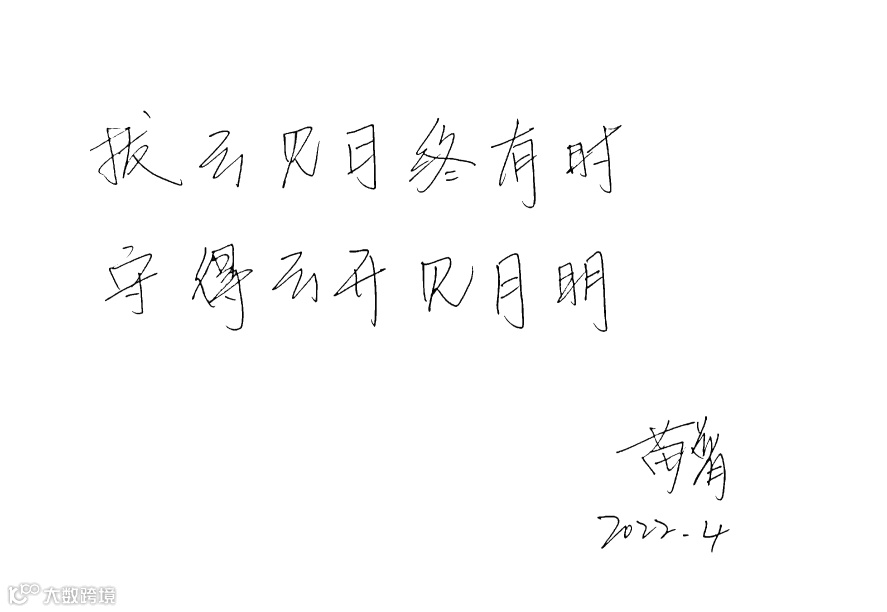 拔云见日终有时
守得云开见月明
苗
2022.4
大数跨境